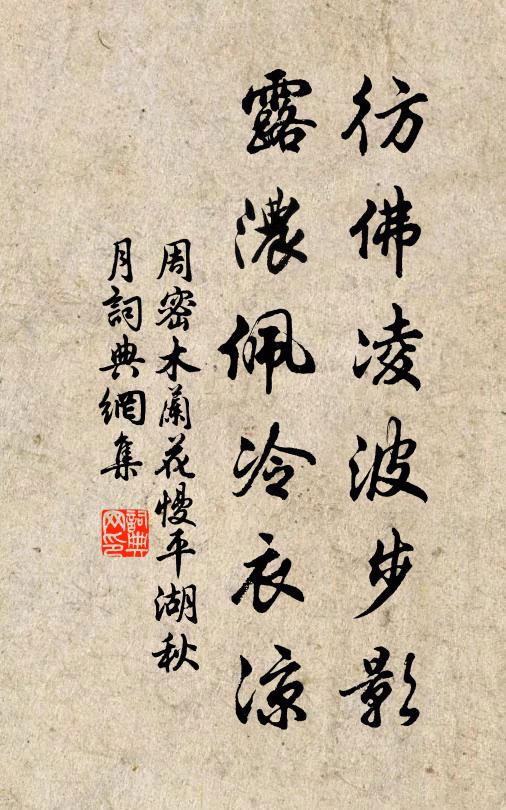 彷佛凌波步影
露濃佩冷衣涼
周密木蘭花慢平湖秋
月詞典網集
詞典网印